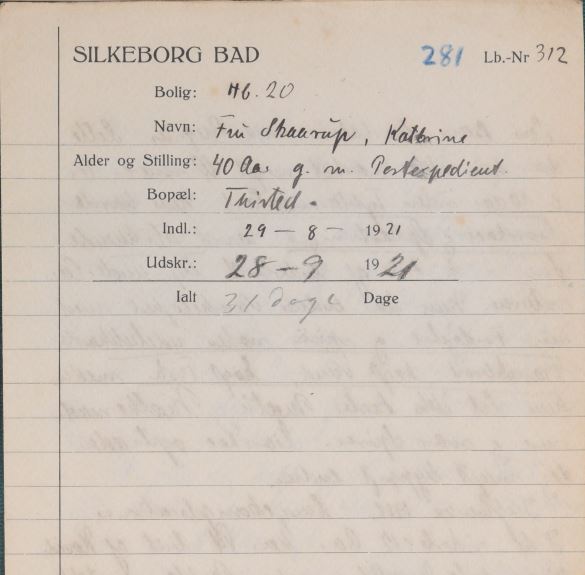 SILKEBORG BAD 281 Lb.-Nr 312
Bolig: H6.20
Navn: Fru Skaarup, Kathrine
Alder og Stilling: 40 Aar g. m. Postexpedient.
Bopæl: Thisted.
Indl.: 29 – 8 – 1921
Udskr.: 28 – 9 1921
Ialt 31 dage Dage